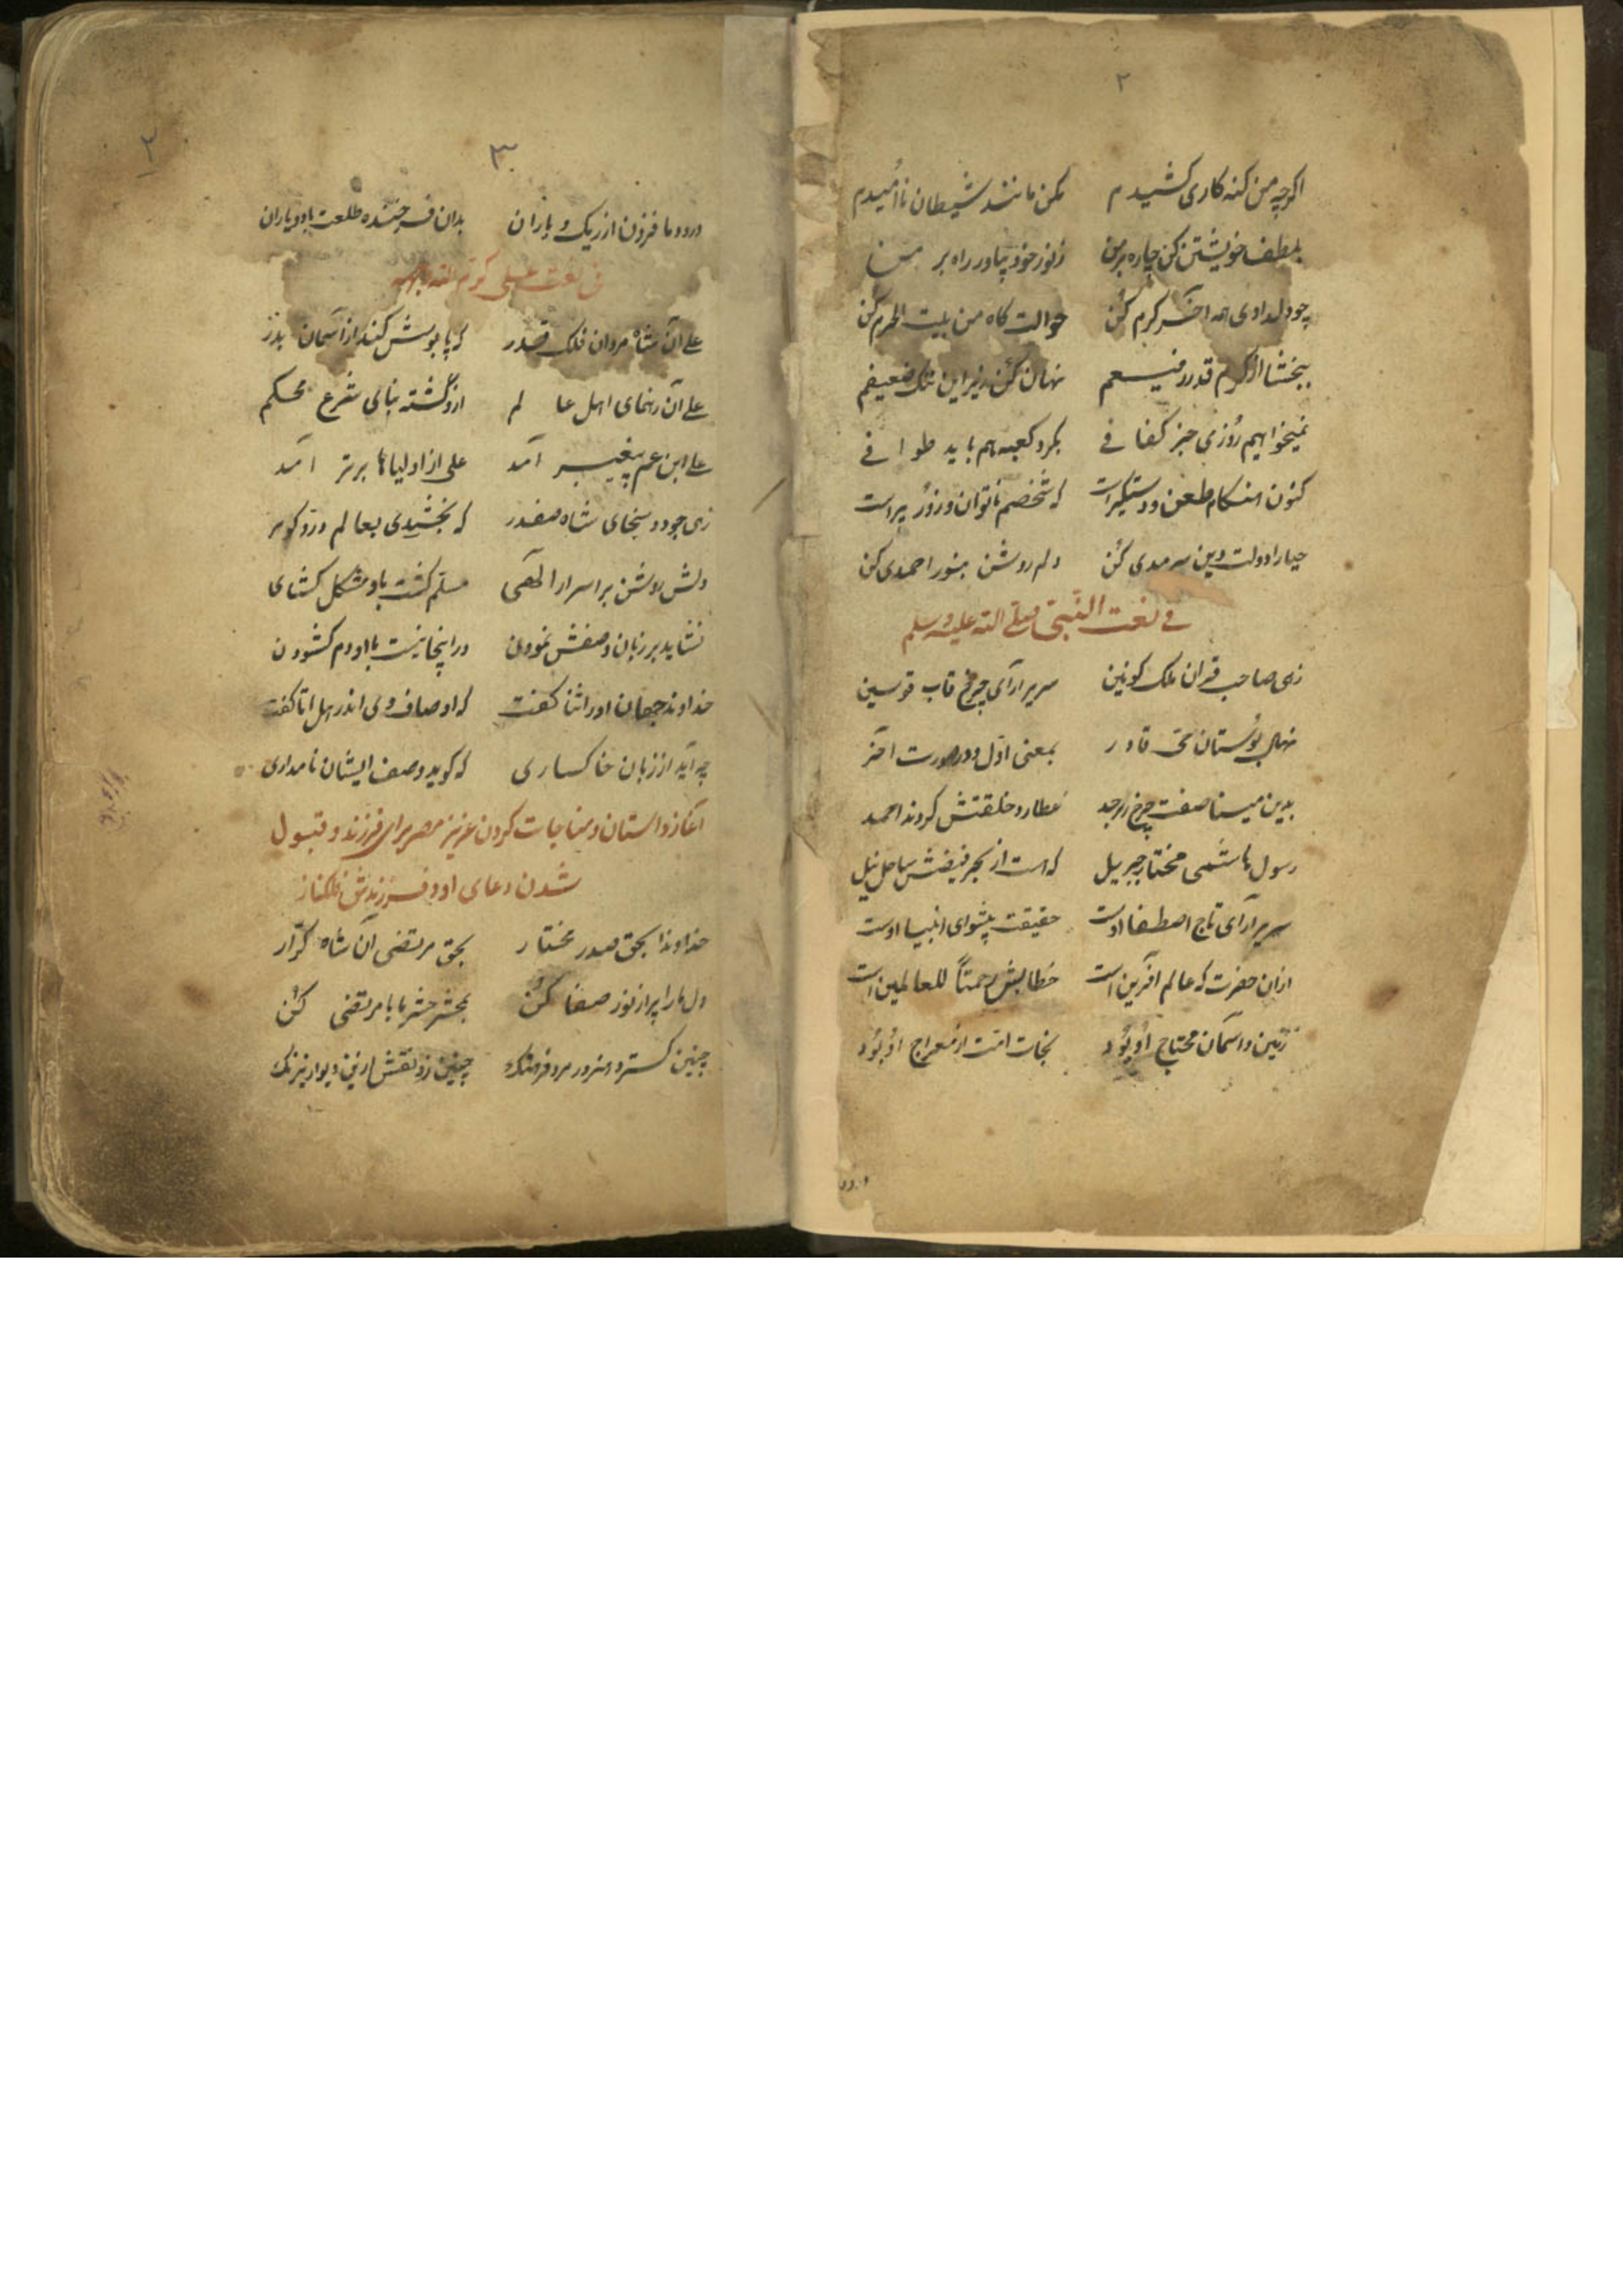 ۲
اگرچه من کنه کاری کشیدم مکن مانند شیطان نا اُمیدم
بلطف خویشتن کن چاره بر من زنور خود بیاور راه بر من
چو دل دادی مرا آخر کرم کُن حوالت کاه من بیت الحرم کن
ببخشا از کرم قدر رفیعم نهان کُن زیر این ضعیفم
نمیخواهیم روُزی جز کفافی بکرد کعبه هم باید طوافی
کنون هنکام طعن و دستکیر است که شخصم ناتوان و زوُر پیر است
حیارا دولت دین سرمدی کُن دلم روشن بنور احمدی کن
فی نعت النّبی صلی الله علیه و سلم
زهی صاحب قران ملک کونین سریر ارآی چرخ قاب قوسین
نهال بُوستان حی قادر بمعنی اوّل و در صورت اخر
بدین مینا صفت چرخ زبرجد عطارد خلقتش کردند احمد
رسول هاشمی مختار جبریل که هست از بحر فیضش ساحل نیل
سریر آرآی تاج اصطفا اوست حقیقت پیشوای انبیا اوست
ازان حضرت که عالم افرین است خطابش رحمتاً للعالمین است
زمین و اسمان محتاج اُو بُود نجات امت از معراج اوُ بُود
درود
۳
۲
درودما فزون از ریک و باران بدان فرخنده طلعت باد و یاران
فی نعت علی کرم الله وجهه
علی آن شاه مردان فلک قدر که پا بوسش کند از آسمان بدر
علی آن رهنمای اهل عالم ازو گشته بنای شرع محکم
علی ابن عم پیغمبر آمد علی از اولیاها برتر آمد
زهی جود و سخای شاه صفدر که بخشیدی بعالم درّ و کوهر
دلش روشن بر اسرار الهی مسلم کشت باو مشکل کشای
نشاید بر زبان وصفش نمودن در اینجا نیست با او دم کشودن
خداوند جهان اورا ثنا کفت که اوصاف وی اندر هل اتا کفت
چه آید از زبان خاکساری که کوید وصف ایشان نامداری
آغاز داستان و مناجات کردن عزیز مصر برای فرزند و قبول
شدن دعای او و فرزندش فلکناز
خداوندا بحق صدر مختار بحق مرتضی آن شاه کرّار
دل مارا پر از نور صفا کُن بمحشر حشر ما با مرتضی کُن
چنین کسترده هنرور مرد فرهنک چنین زد نقش دیوار نیرنک